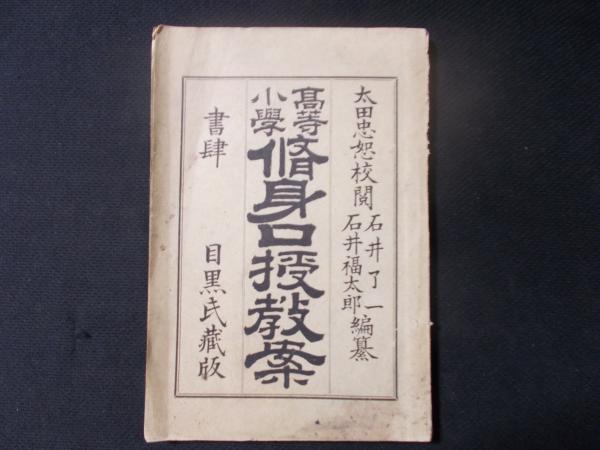 太田忠恕校閲
石井了一
石井福太郎
編纂
高等
小學
脩身口授教案
書肆 目黒氏藏版